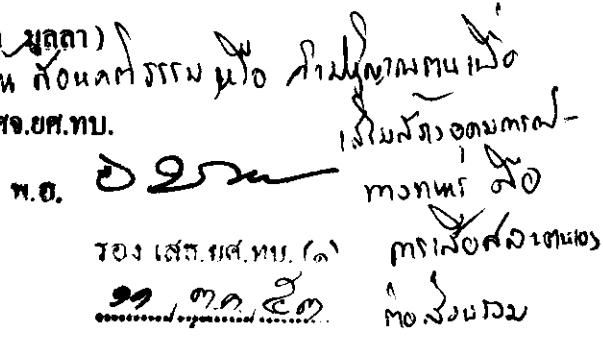 มูลลา)
ก่อนคติธรรม หรือ คำปฏิญาณตน เพื่อ
ศจ.ยศ.ทบ.
เสริมสร้างอุดมการณ์
พ.อ.
ทางทหาร คือ
รอง เสธ.ยศ.ทบ. (๑)
การเสียสละตนเอง
๑๑ ต.ค. ๕๓
ต่อส่วนรวม